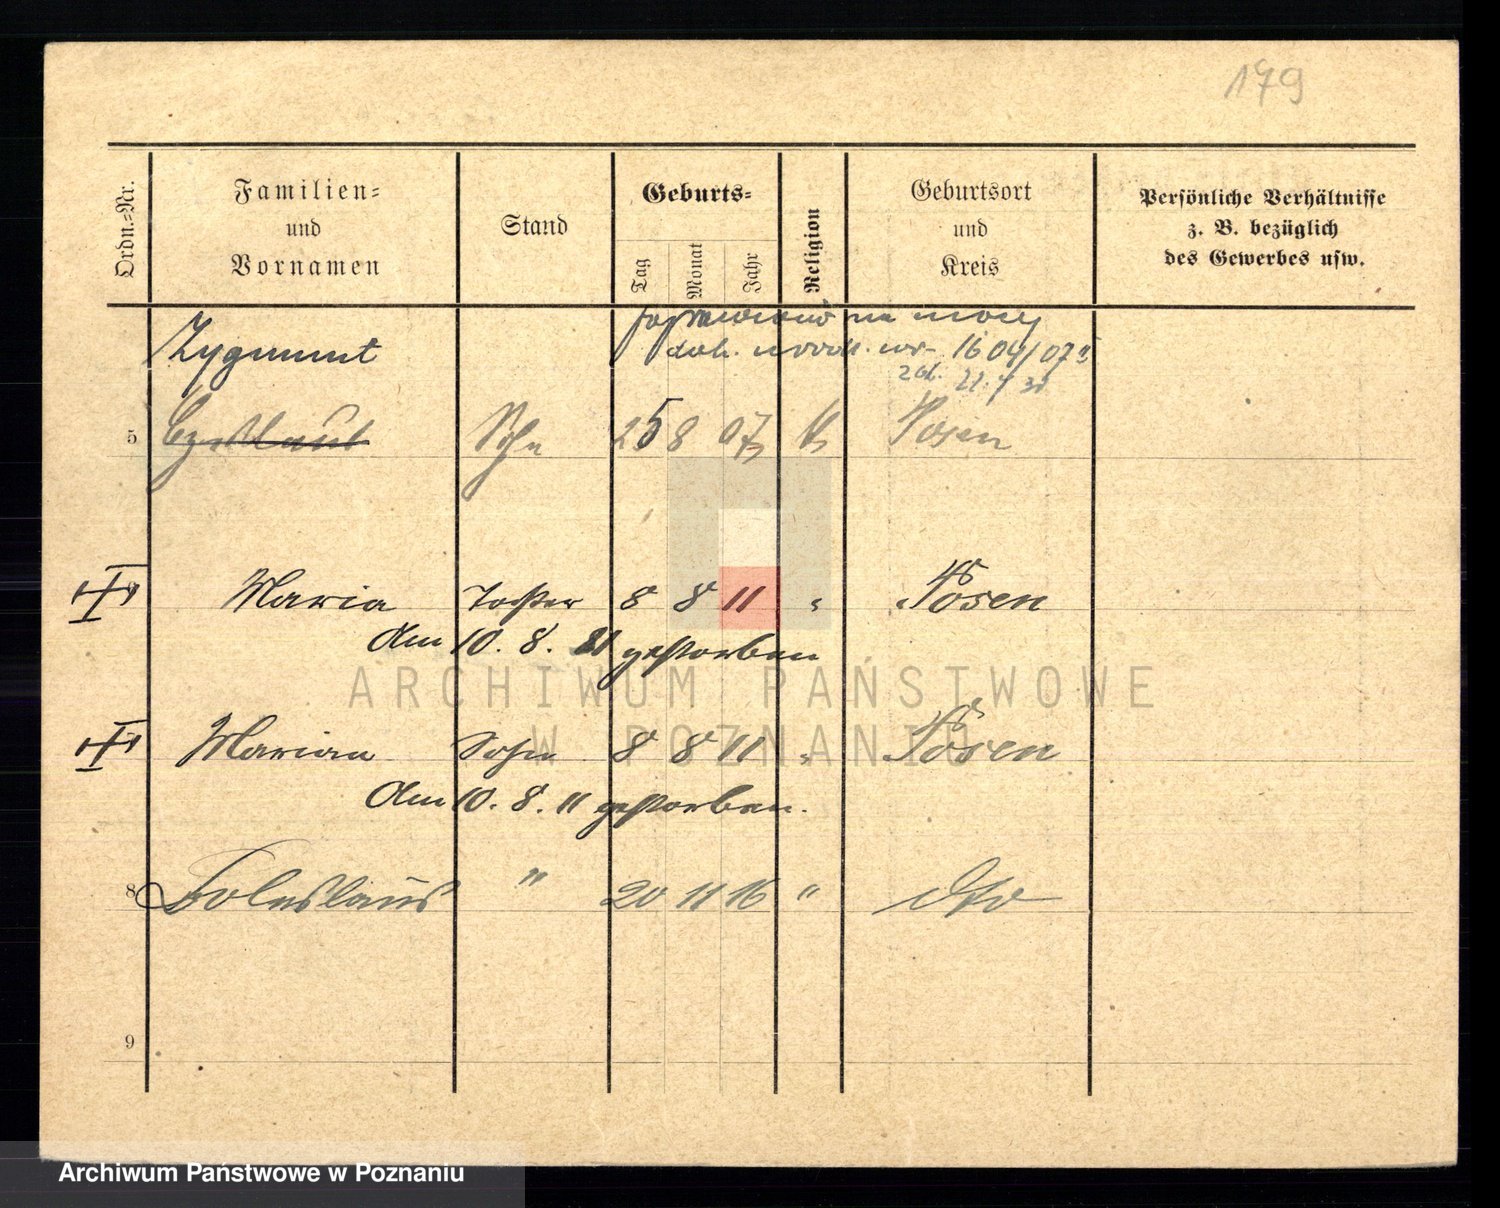 179
Ordn.-Nr.
Familien-
und
Vornamen
Stand
Geburts-
Tag
Monat
Jahr
Religion
Geburtsort
und
Kreis
Persönliche Verhältnisse
z. B. bezüglich
des Gewerbes usw.
poprawiono na mocy
nr 1604/07
Zygmunt
5 Sohn 25 8 07 k Posen
Maria Tochter 8 8 11 " Posen
Am 10. 8. 11 gestorben
Marian Sohn 8 8 11 " Posen
Am 10. 8. 11 gestorben.
8 Boleslaus " 20 11 16 " dto
9
ARCHIWUM PAŃSTWOWE
W POZNANIU
Archiwum Państwowe w Poznaniu